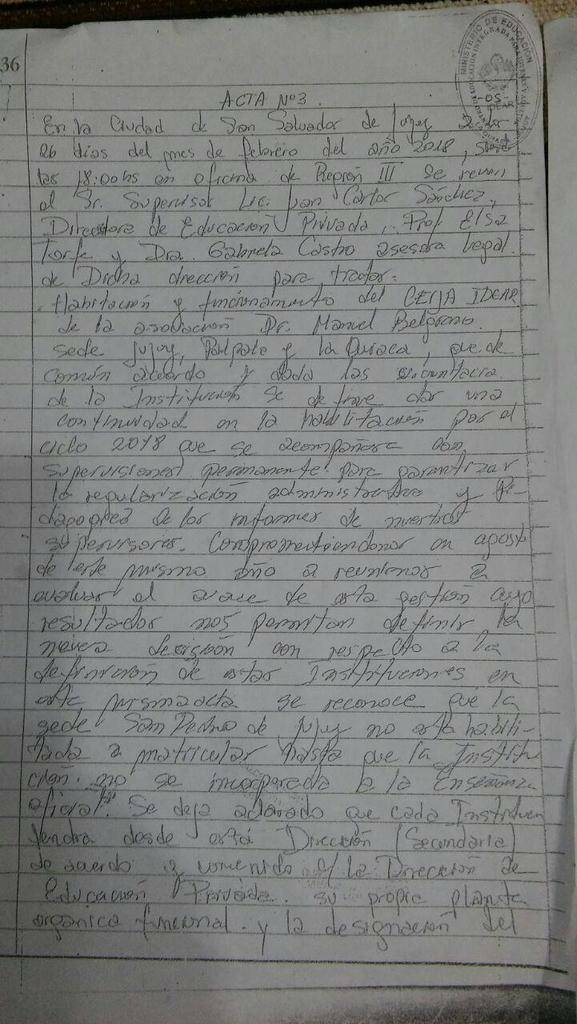 36
MINISTERIO DE EDUCACIÓN
ACTA Nº3.
En la Ciudad de San Salvador de Jujuy, a los
26 días del mes de febrero del año 2018, siendo
las 18:00hs en oficina de Región III se reunen
el Sr. Supervisor Lic. Juan Carlos Sánchez,
Directora de Educación Privada, Prof. Elsa
y Dra. Gabriela Castro asesora legal
de Dicha dirección para tratar:
Habilitación y funcionamiento del CEIJA IDEAR
de la asociación Dr. Manuel Belgrano
sede Jujuy, Palpalá y La Quiaca, que de
común acuerdo y dada las
de la Institución se dar una
continuidad en la habilitación por el
ciclo 2018 que se acompañara con
supervisiones permanente para garantizar
la regularización administrativa y Pe-
dagogica de los informes de nuestros
supervisores. Comprometiendonos en agosto
de este mismo año a reunirnos a
evaluar el avace de esta gestion cuyo
resultados nos permitan definir la
nueva decisión con respecto a la
definición de estas Instituciones en
esta misma acta se reconoce que la
sede San Pedro de Jujuy no esta habili-
tada a matricular hasta que la Institu
ción no se incorporada a la Enseñanza
oficial. Se deja aclarado que cada Institucion
tendra desde esta Dirección (Secundaria)
de acuerdo a convenido c/ la Dirección de
Educación Privada. su propia planta
organica funcional. y la designación del